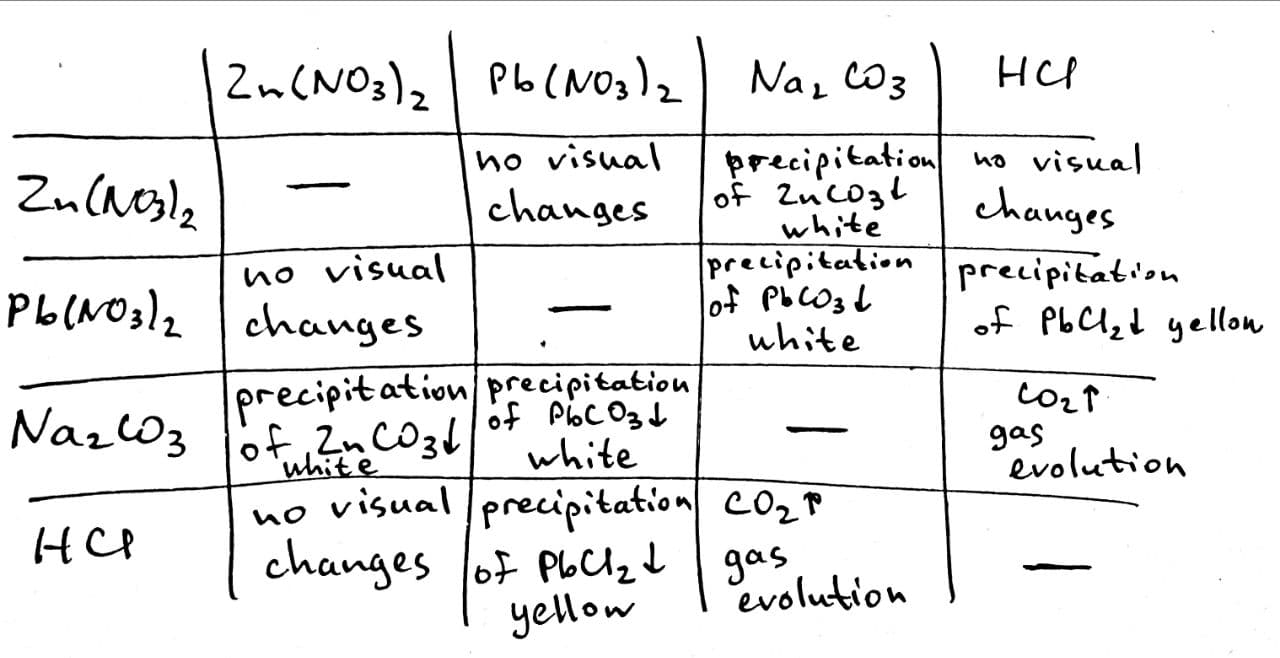 Zn(NO3)2 Pb(NO3)2 Na2CO3 HCl
Zn(NO3)2 — no visual changes precipitation of ZnCO3↓ white no visual changes
Pb(NO3)2 no visual changes — precipitation of PbCO3↓ white precipitation of PbCl2↓ yellow
Na2CO3 precipitation of ZnCO3↓ white precipitation of PbCO3↓ white — CO2↑ gas evolution
HCl no visual changes precipitation of PbCl2↓ yellow CO2↑ gas evolution —